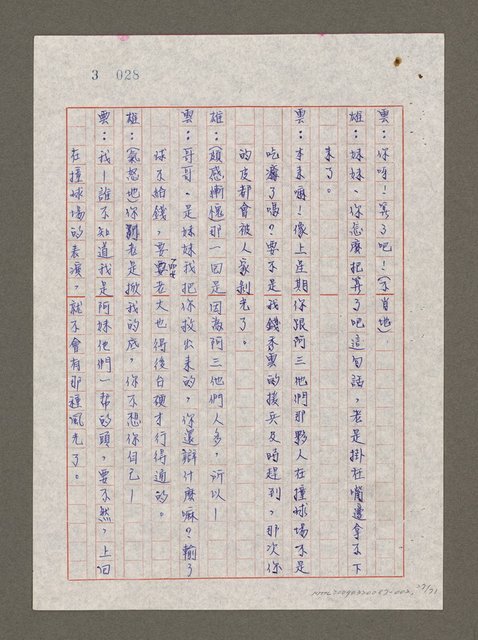 3 028
雲：你呀！算了吧！(不肖地)
雄：妹妹，你怎麼把算了吧這句話，老是掛在嘴邊拿不下
來了。
雲：本來嘛！像上星期你跟阿三他們那夥人在撞球場不是
吃癟了嗎？要不是我錢秀雲的援兵及時趕到，那次你
的皮都會被人家剝光了。
雄：(頗感慚愧)那一回是因為阿三他們人多，所以—
雲：哥哥，是妹妹我把你救出來的，你還辯什麼嘛？輸了
球不給錢，要耍老大也得後台硬才行得通的。
雄：(氣怒地)你老是掀我的底，你不想你自己—
雲：我！誰不知道我是阿妹他們一幫的頭，要不然，上回
在撞球場的表演，就不會有那種風光了。